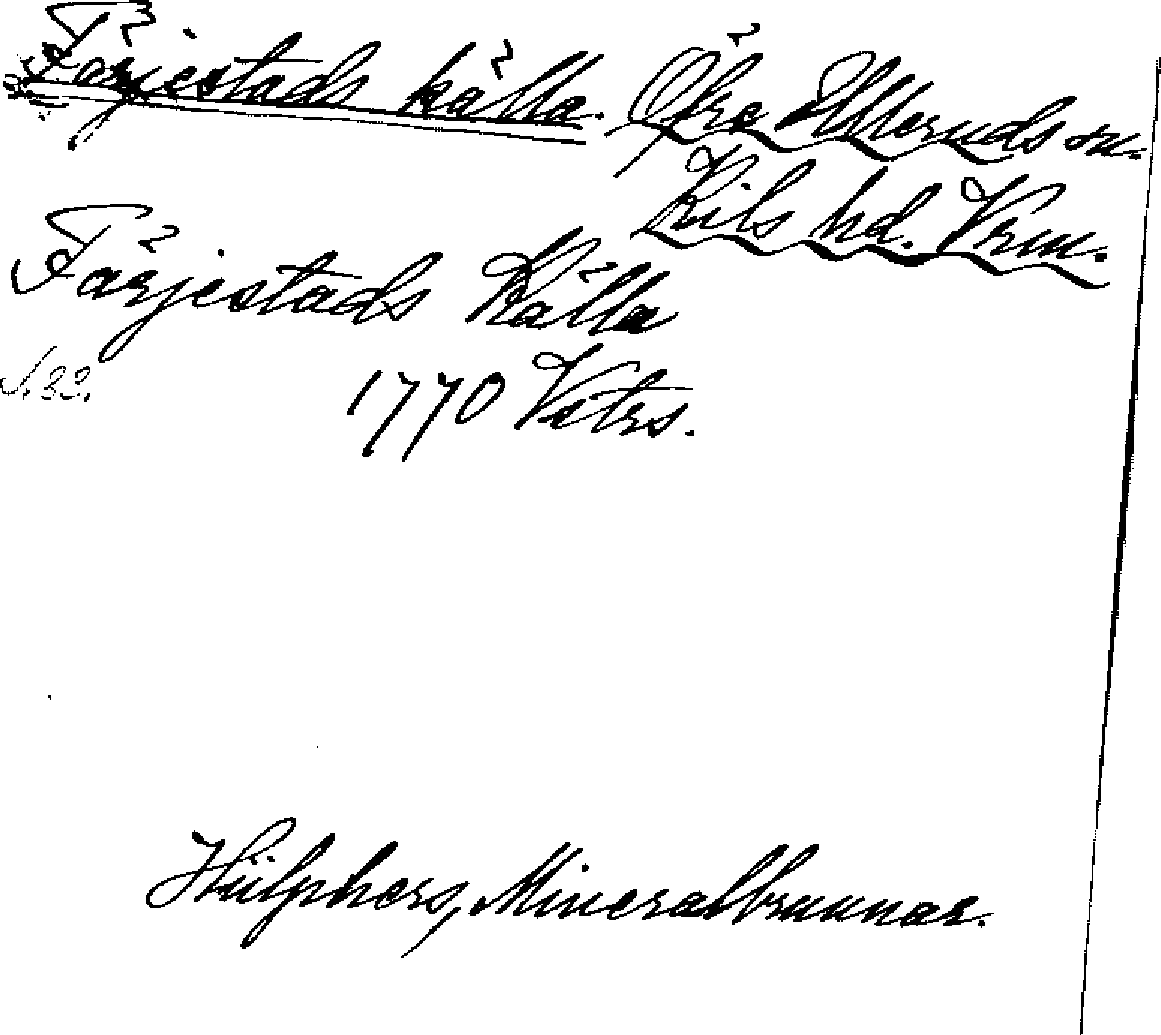 Färjestads källa. Övre Ulleruds sn.
Kils hd. Vrm.
Färjestads Källa
1770 Vstrs.
Hülphers, Mineralbrunnar.